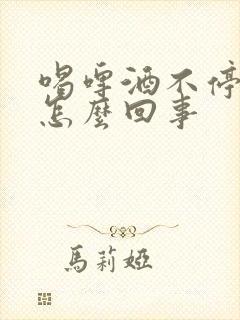 喝啤酒不停
怎麼回事
馬莉婭